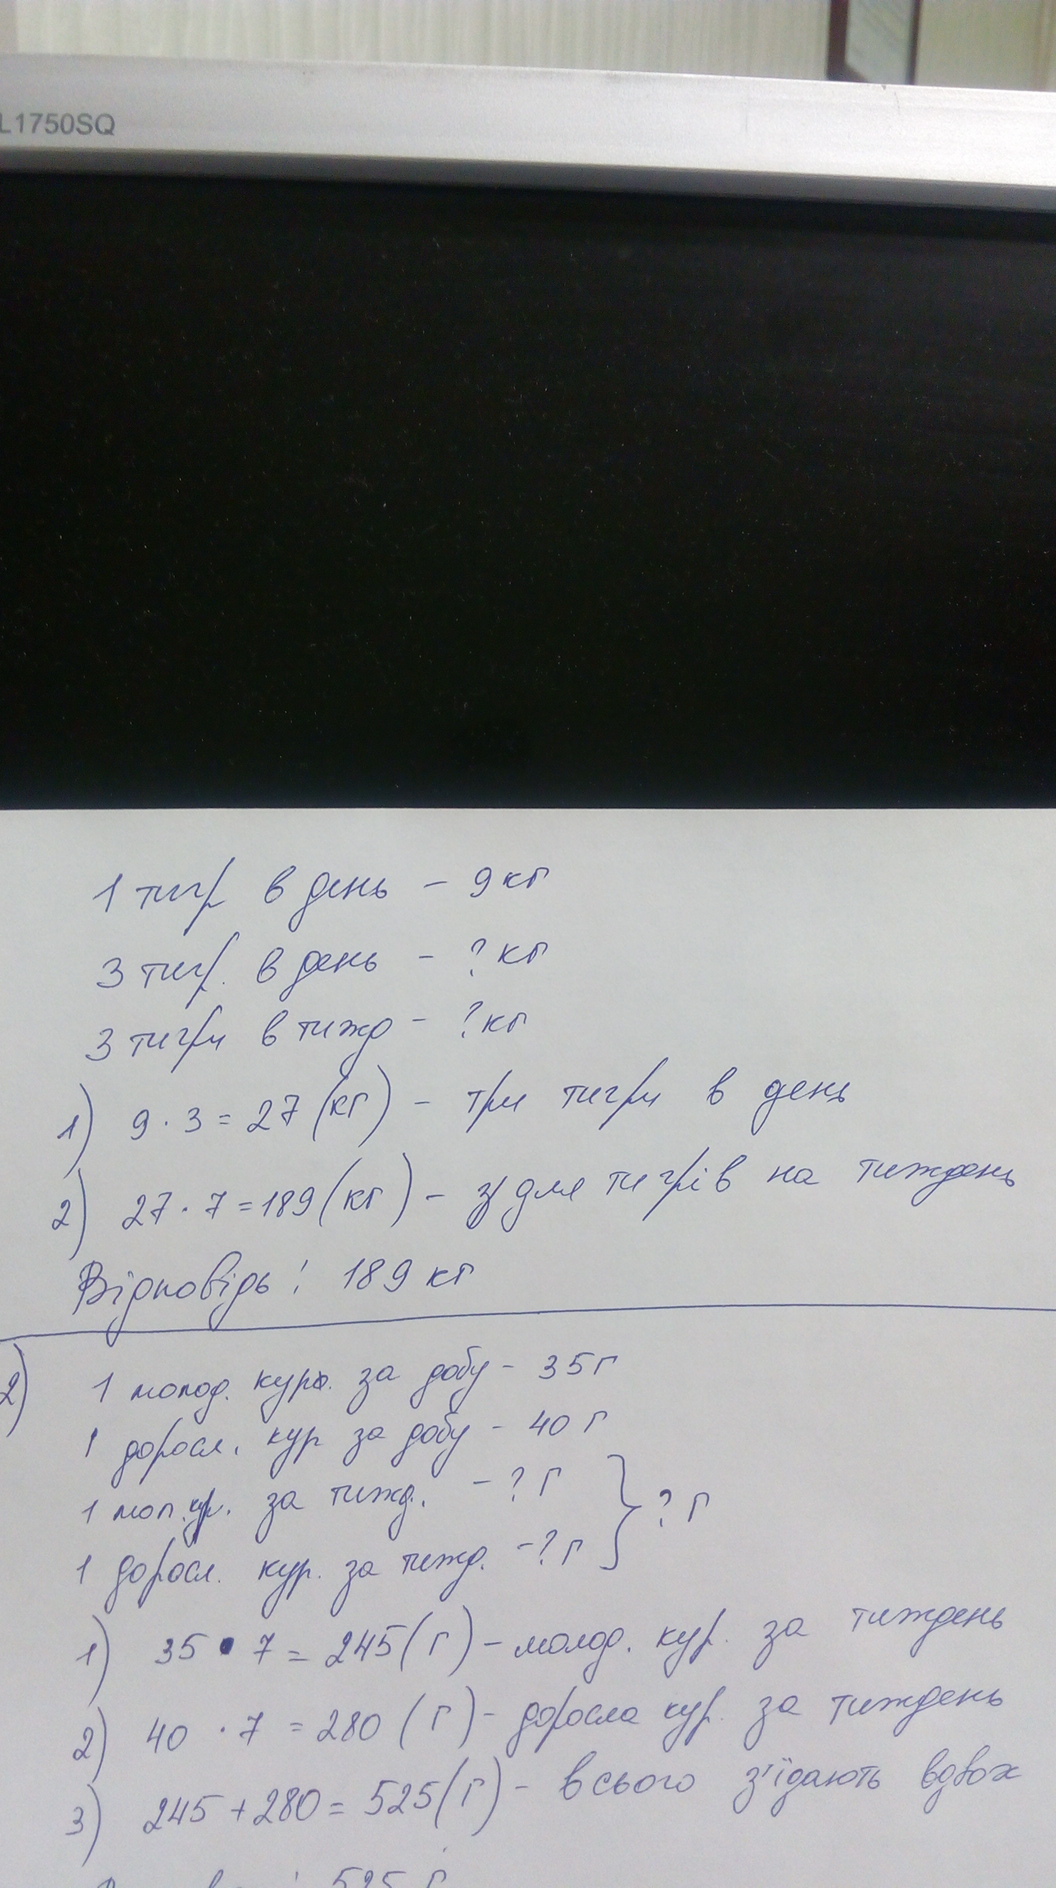 L1750SQ
1 тигр в день - 9 кг
3 тигр. в день - ? кг
3 тигри в тижд - ? кг
1) 9 · 3 = 27 (кг) - три тигри в день
2) 27 · 7 = 189 (кг) - з/для тигрів на тиждень
Відповідь: 189 кг
2) 1 молод. кур. за добу - 35 г
1 доросл. кур за добу - 40 г
1 мол. кур. за тижд. - ? г } ? г
1 доросл. кур. за тижд. - ? г
1) 35 · 7 = 245 (г) - молод. кур. за тиждень
2) 40 · 7 = 280 (г) - доросла кур. за тиждень
3) 245 + 280 = 525 (г) - всього з'їдають вдвох
525 г